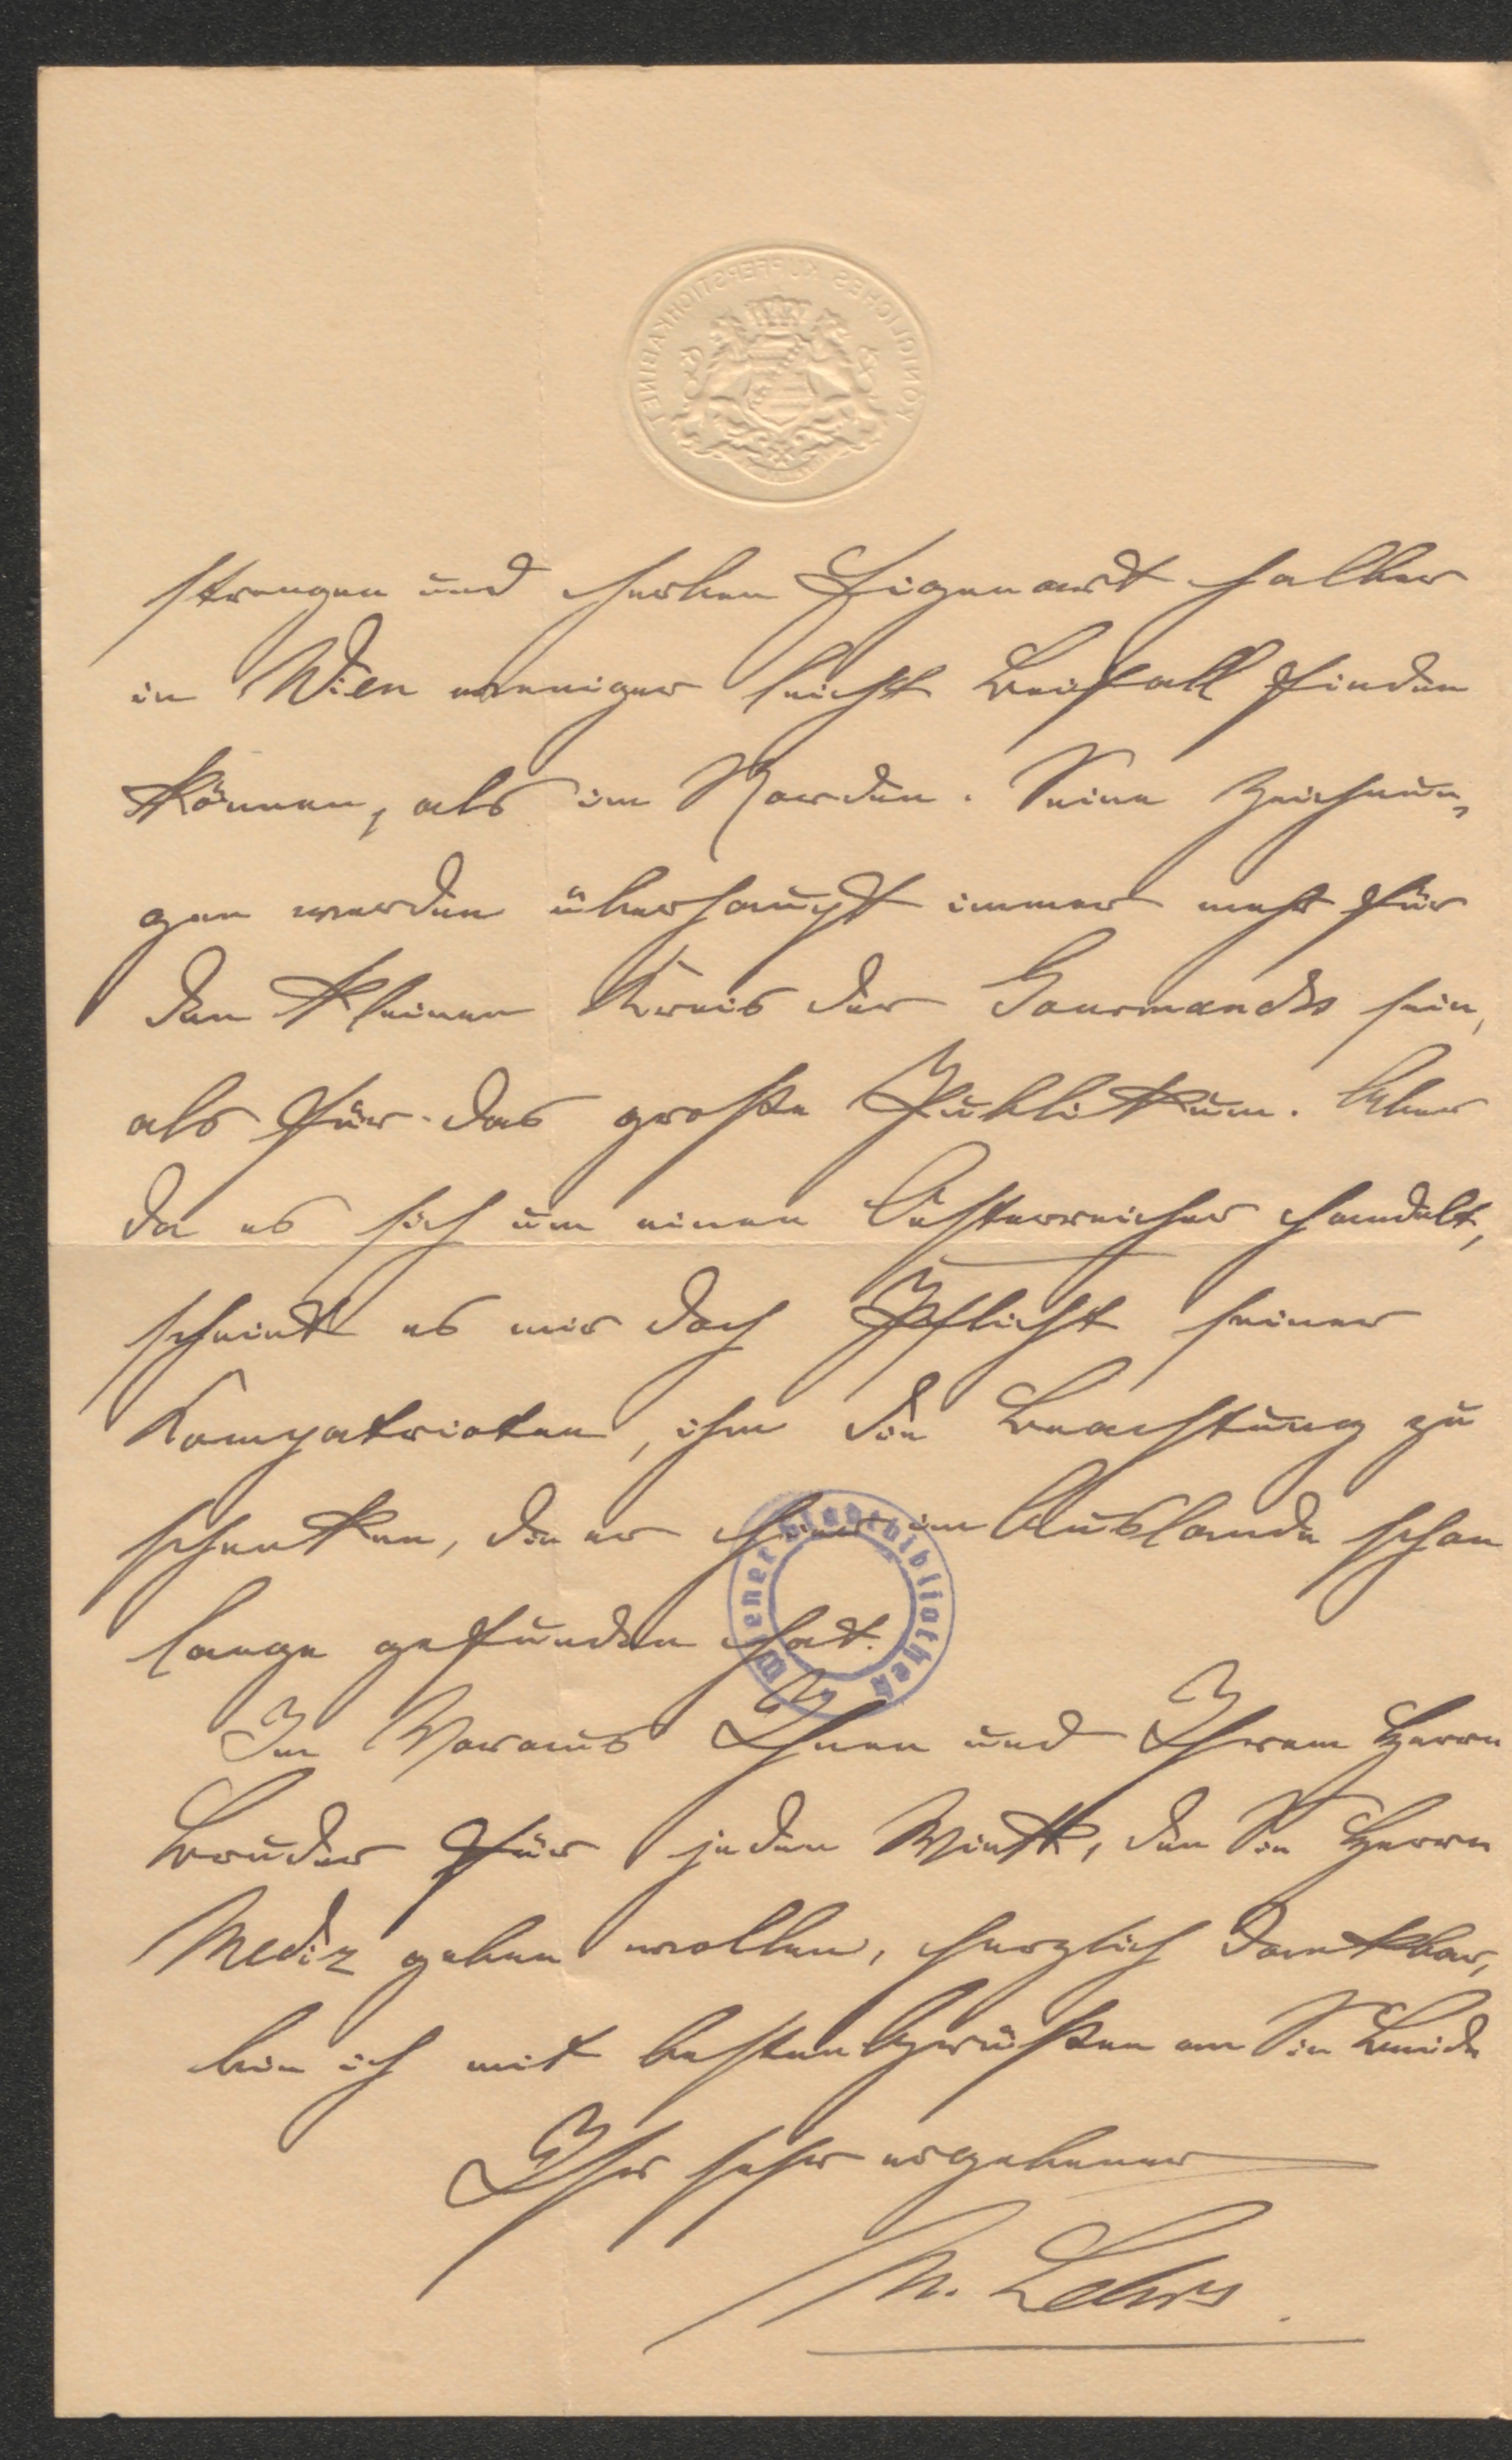 KÖNIGLICHES KUPFERSTICHKABINET
strengen und herben Eigenart halber
in Wien weniger leicht Beifall finden
können, als im Norden. Seine Zeichnun-
gen werden überhaupt immer mehr für
den kleinen Kreis der Gourmands sein,
als für das große Publikum. Aber
da es sich um einen Oesterreicher handelt,
scheint es mir doch Pflicht seiner
Kompatrioten, ihm die Beachtung zu
schenken, die er hier im Auslande schon
lange gefunden hat.
Wiener Stadtbibliothek
Im Voraus Ihnen und Ihrem Herrn
Bruder für jeden Wink, den Sie Herrn
Mediz geben wollen, herzlich dankbar,
bin ich mit besten Grüßen an Sie Beide
Ihr sehr ergebener
M. Lehrs.